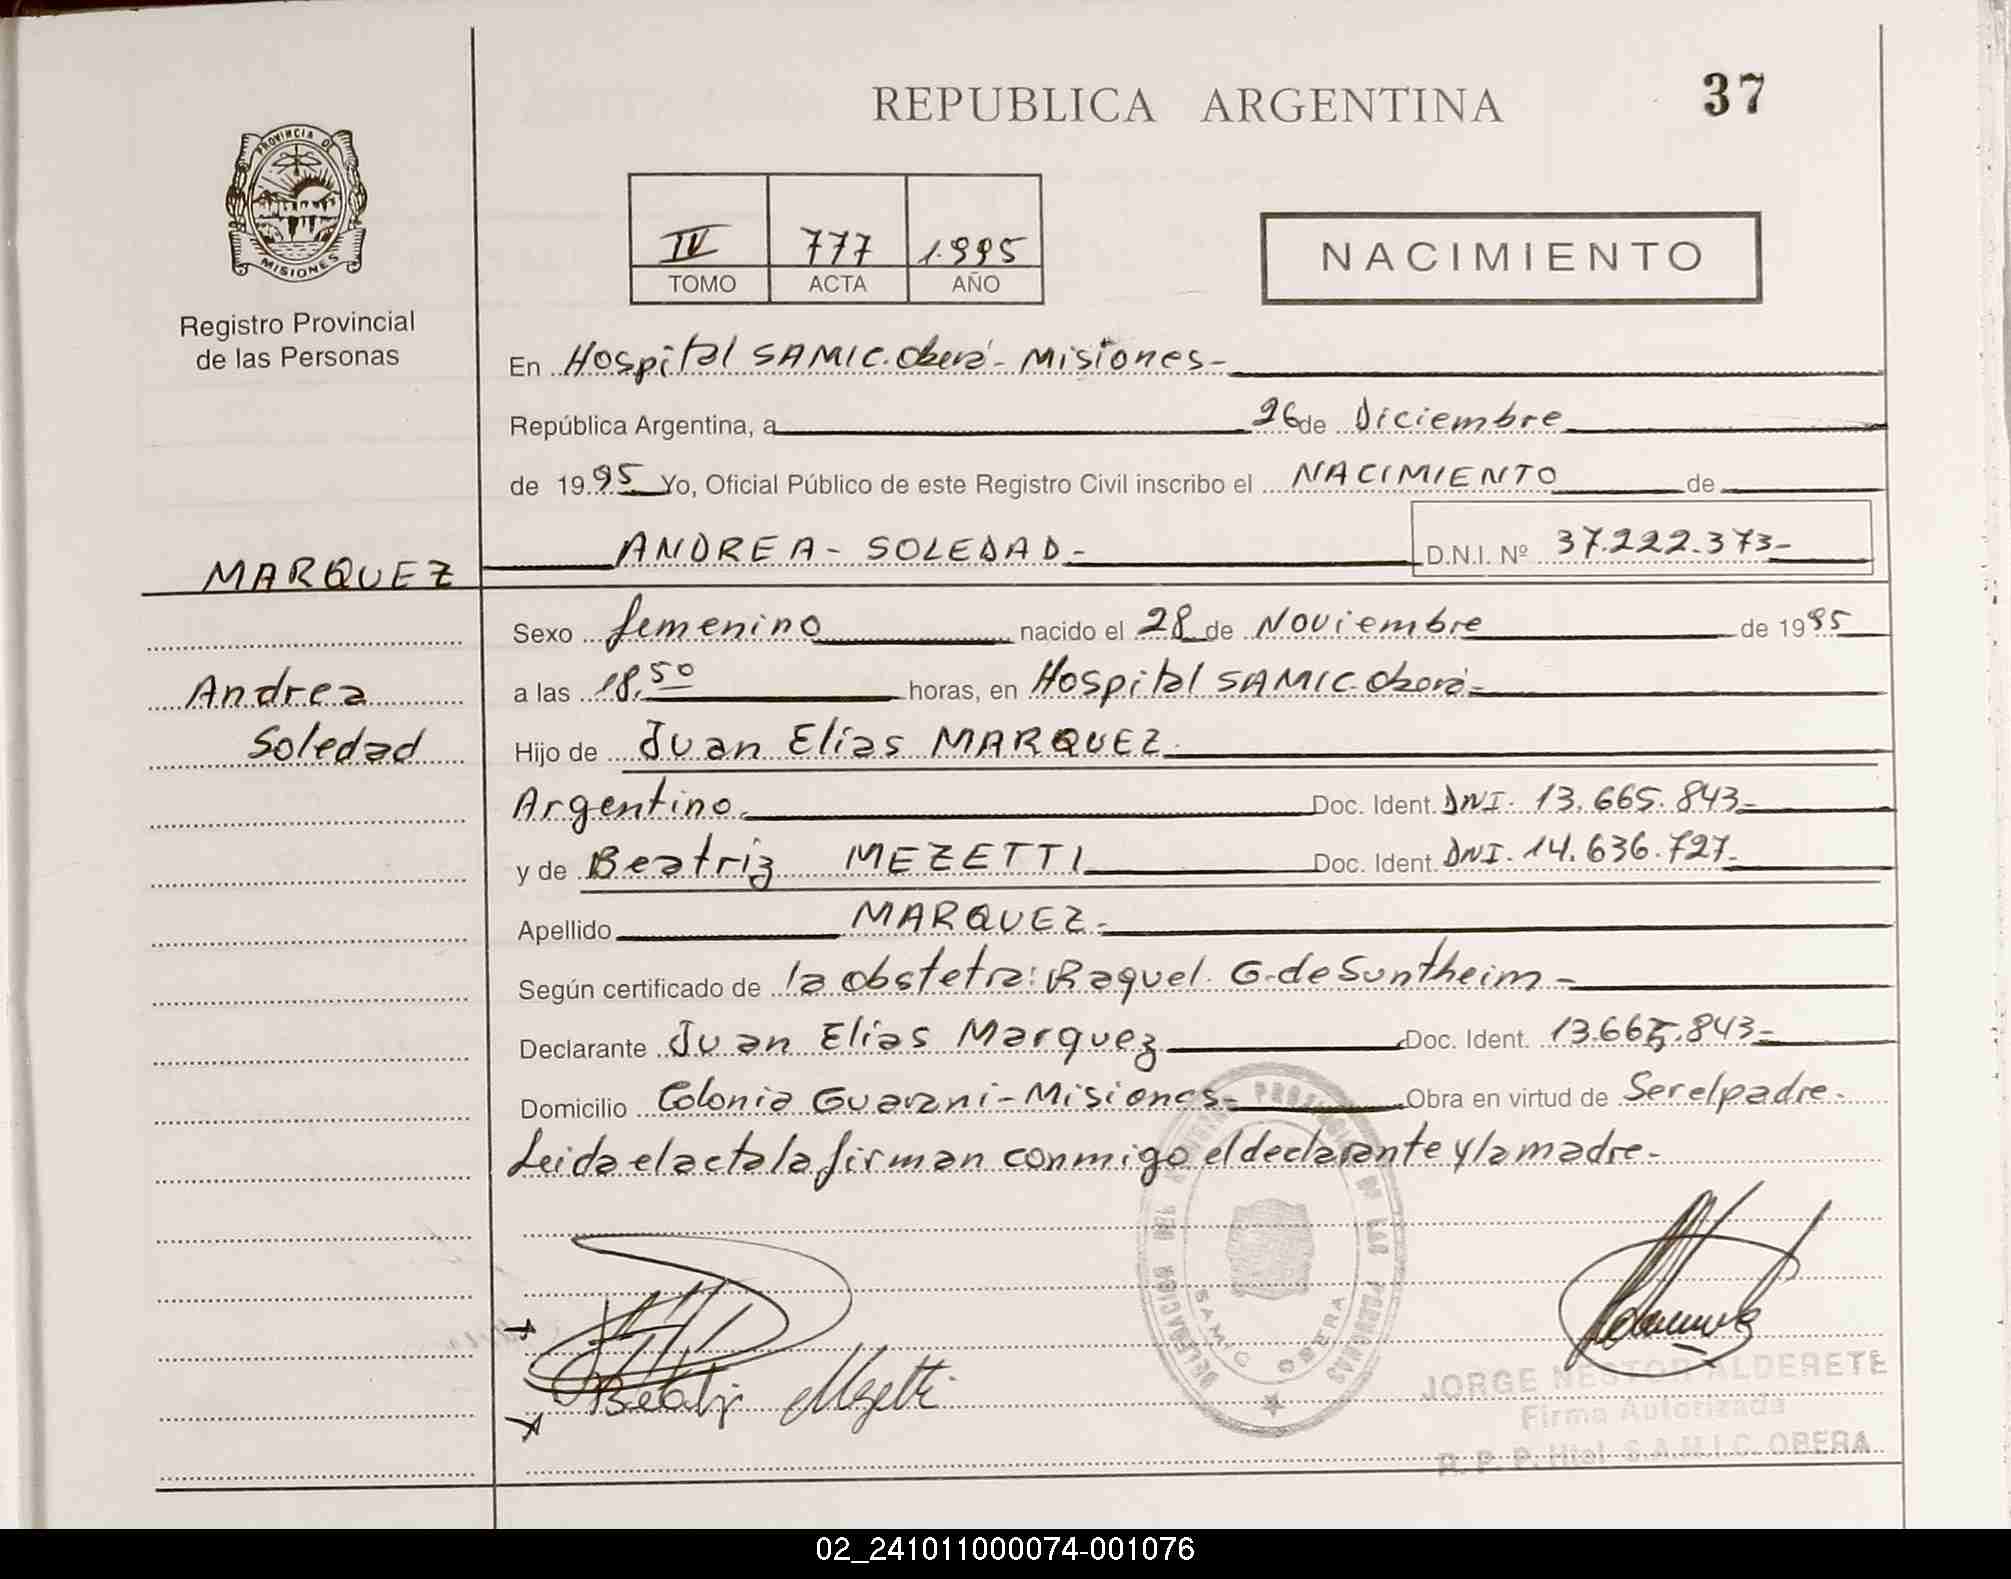 REPUBLICA ARGENTINA
37
PROVINCIA DE
MISIONES
Registro Provincial
de las Personas
IV 777 1.995
TOMO ACTA AÑO
NACIMIENTO
En Hospital SAMIC. Oberá - Misiones-
República Argentina, a 26 de Diciembre
de 1995 Yo, Oficial Público de este Registro Civil inscribo el NACIMIENTO de
MARQUEZ
ANDREA - SOLEDAD - D.N.I. Nº 37.222.373-
Sexo femenino nacido el 28 de Noviembre de 1995
Andrea
Soledad
a las 18,50 horas, en Hospital SAMIC. Oberá-
Hijo de Juan Elias MARQUEZ.
Argentino. Doc. Ident. DNI. 13.665.843-
y de Beatriz MEZETTI Doc. Ident. DNI. 14.636.727-
Apellido MARQUEZ-
Según certificado de la obstetra: Raquel. G. de Suntheim-
Declarante Juan Elias Marquez Doc. Ident. 13.665.843-
Domicilio Colonia Guarani - Misiones- Obra en virtud de Ser el padre-
Leida el acta la firman conmigo el declarante y la madre-
DELEGACION DEL REGISTRO PROVINCIAL DE LAS PERSONAS
SAMIC OBERA
Beatriz Mezetti
JORGE NESTOR ALDERETE
Firma Autorizada
R. P. P. S.A.M.I.C. OBERA
02_241011000074-001076